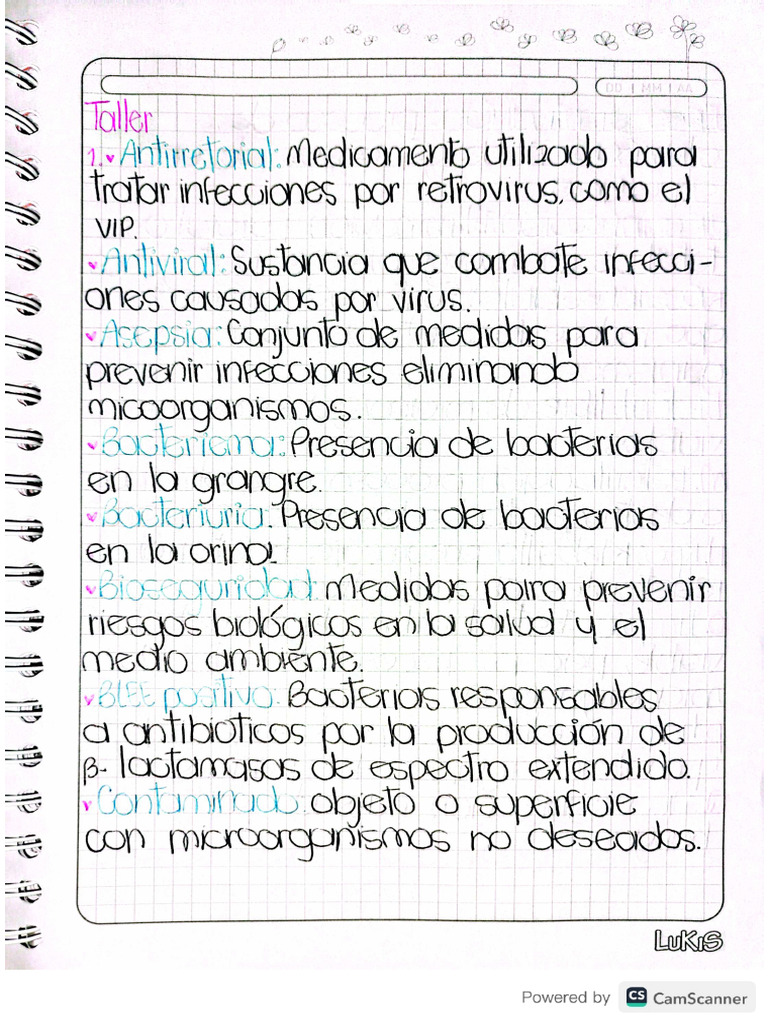 DD | MM | AA
Taller
1. Antirretorial: Medicamento utilizado para
tratar infecciones por retrovirus, como el
VIP.
Antiviral: Sustancia que combate infecci-
ones causadas por virus.
Asepsia: Conjunto de medidas para
prevenir infecciones eliminando
micoorganismos.
Bacteriema: Presencia de bacterias
en la grangre.
Bacteriuria: Presencia de bacterias
en la orina.
Bioseguridad: Medidas para prevenir
riesgos biológicos en la salud y el
medio ambiente.
BLEE positivo: Bacterias responsables
a antibioticos por la producción de
β- lactamasas de espectro extendido.
Contaminado: objeto o superficie
con microorganismos no deseados.
LUKIS
Powered by CS CamScanner